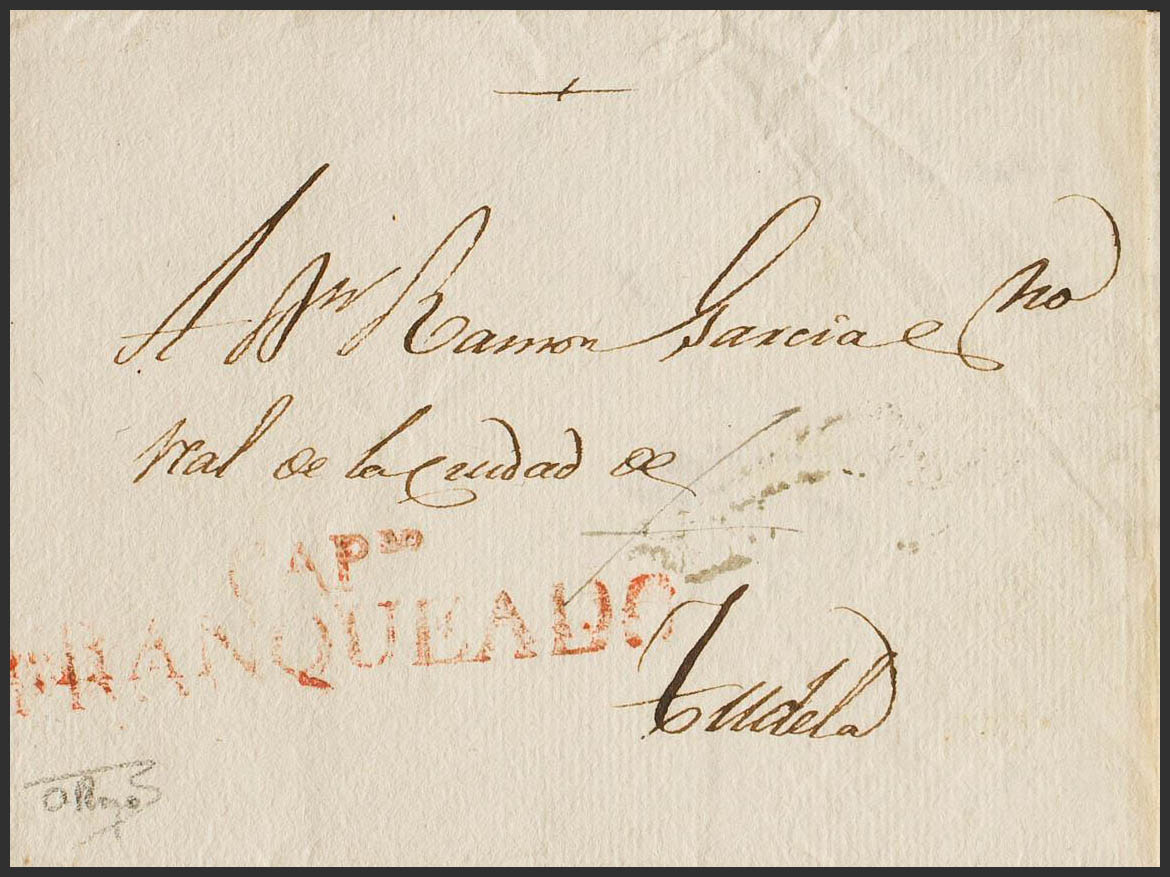 A Dn Ramon Garcia Esno
Real de la Ciudad de
CAPno
FRANQUEADO
Tudela